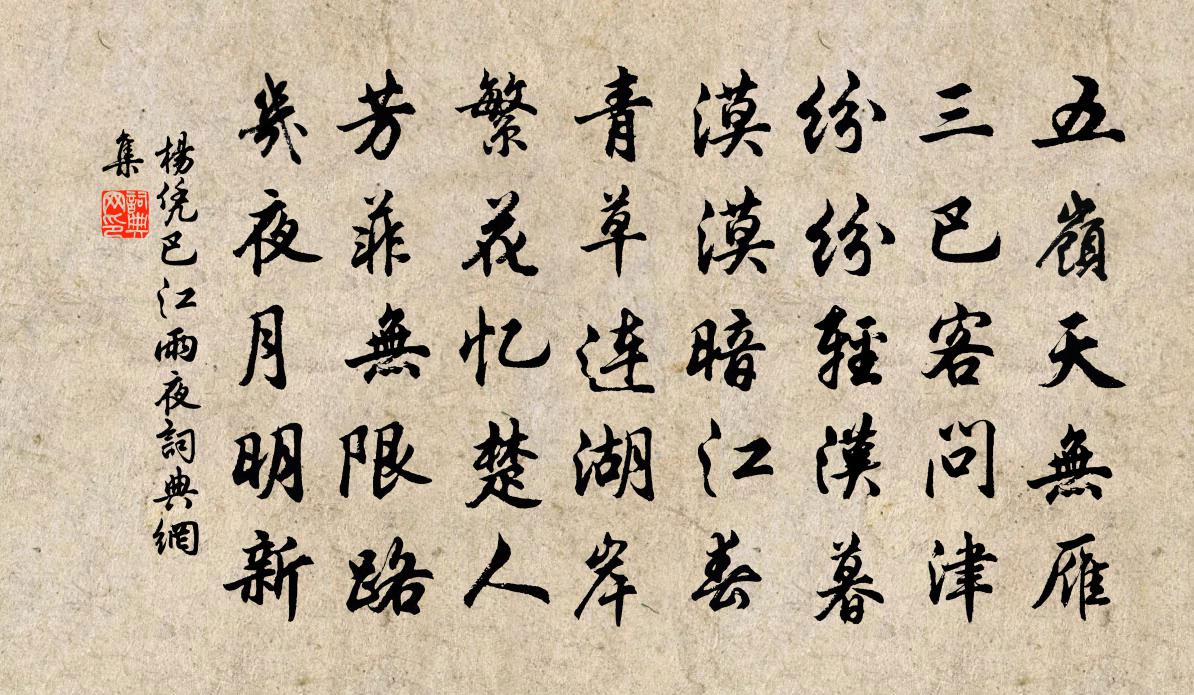 五嶺天無雁
三巴客問津
紛紛輕漠暮
漠漠暗江春
青草连湖岸
繁花忆楚人
芳菲無限路
幾夜月明新
楊凭巴江雨夜詞典網
集
詞典
网印